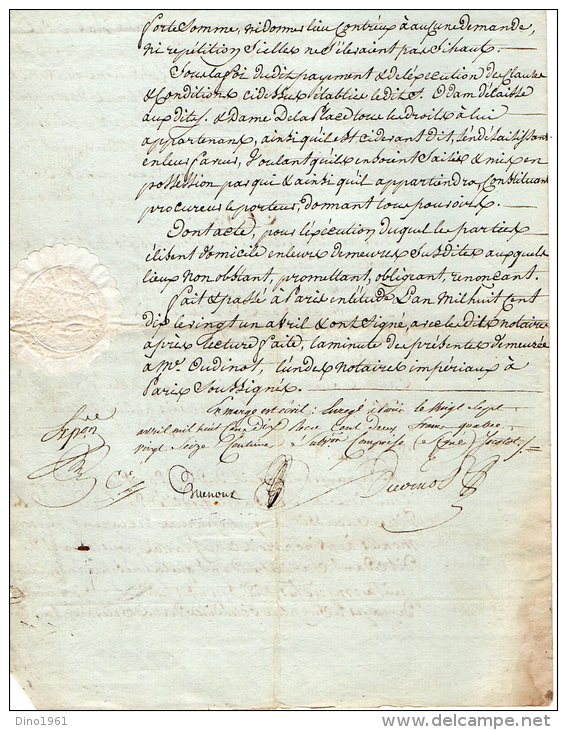 porte Somme, ni donner lieu Contr'eux à aucune demande,
ni repetition Si elles ne S'élevaient pas Si haut.
Sous la foi du dit payement & de l'exécution des clauses
& Conditions cidessus établies le dit S. Odam délaisse
aux dits S. & Dame Delaplace tous les droits à lui
appartenans, ainsi qu'il est cidevant dit,
en leur faveur, Voulant qu'ils en soient Saisis & mis en
possession par qui & ainsi qu'il appartiendra, Constituant
procureur le porteur, donnant tous pouvoirs.
Dont acte, pour l'exécution duquel les parties
élisent domicile en leurs demeures Susdites auxquels
lieux non obstant, promettant, obligeant, renonçant.
Fait & passé à Paris en l'étude L'an mil huit Cent
dix le vingt un avril & ont Signé, avec les dits notaires
après lecture faite, la minute des présentes demeurée
à Mr. Oudinot, l'un des notaires impériaux à
Paris Soussignés.
En marge est écrit: Enregé à Paris le Vingt Sept
avril mil huit Cent dix Reçu Cent Deux francs quatre
Vingt Seize Centimes Comprise (Signé)
Dino1961
delcampe.net